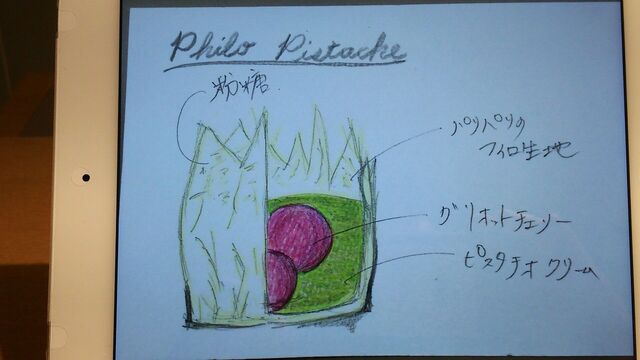 Philo Pistache
粉糖
パリパリの
フィロ生地
グリオットチェリー
ピスタチオクリーム